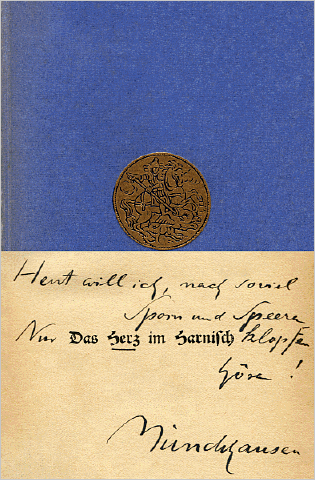 Heut will ich, nach soviel
Sporn und Speeren
Nur Das Herz im Harnisch klopfen
hören!
Münchhausen